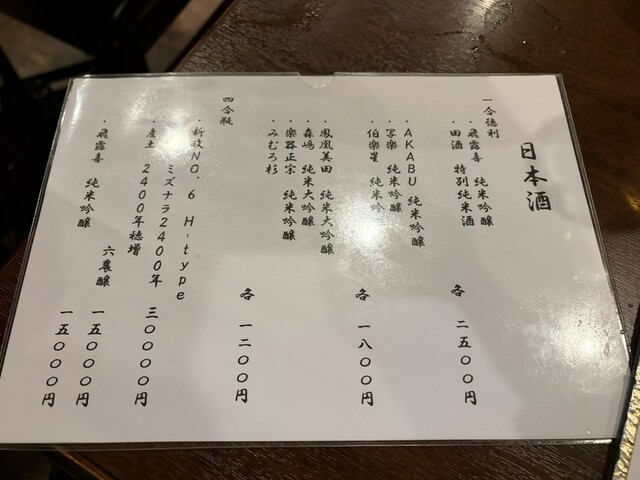 日本酒
一合徳利
・飛露喜 純米吟醸
・田酒 特別純米酒
各 二五〇〇円
・AKABU 純米吟醸
・写楽 純米吟醸
・伯楽星 純米吟
各 一八〇〇円
・鳳凰美田 純米大吟醸
・森嶋 純米大吟醸
・楽器正宗 純米吟醸
・みむろ杉
各 一二〇〇円
四合瓶
・新政NO.6 H-type
ミズナラ2400年
三〇〇〇〇円
・産土 2400年穂増
六農醸
一五〇〇〇円
・飛露喜 純米吟醸
一五〇〇〇円